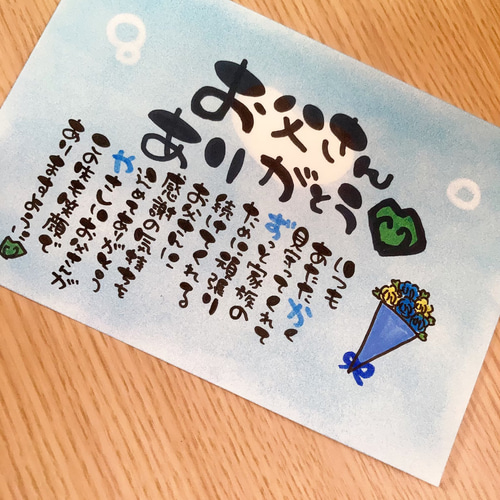 お父さん
ありがとう
いつも
あたたかく
見守ってくれて
ずっと家族の
ために頑張り
続けてくれる
お父さんに
感謝の気持ちを
こめてありがとう
やさしいお父さんが
この先も笑顔で
ありますように…